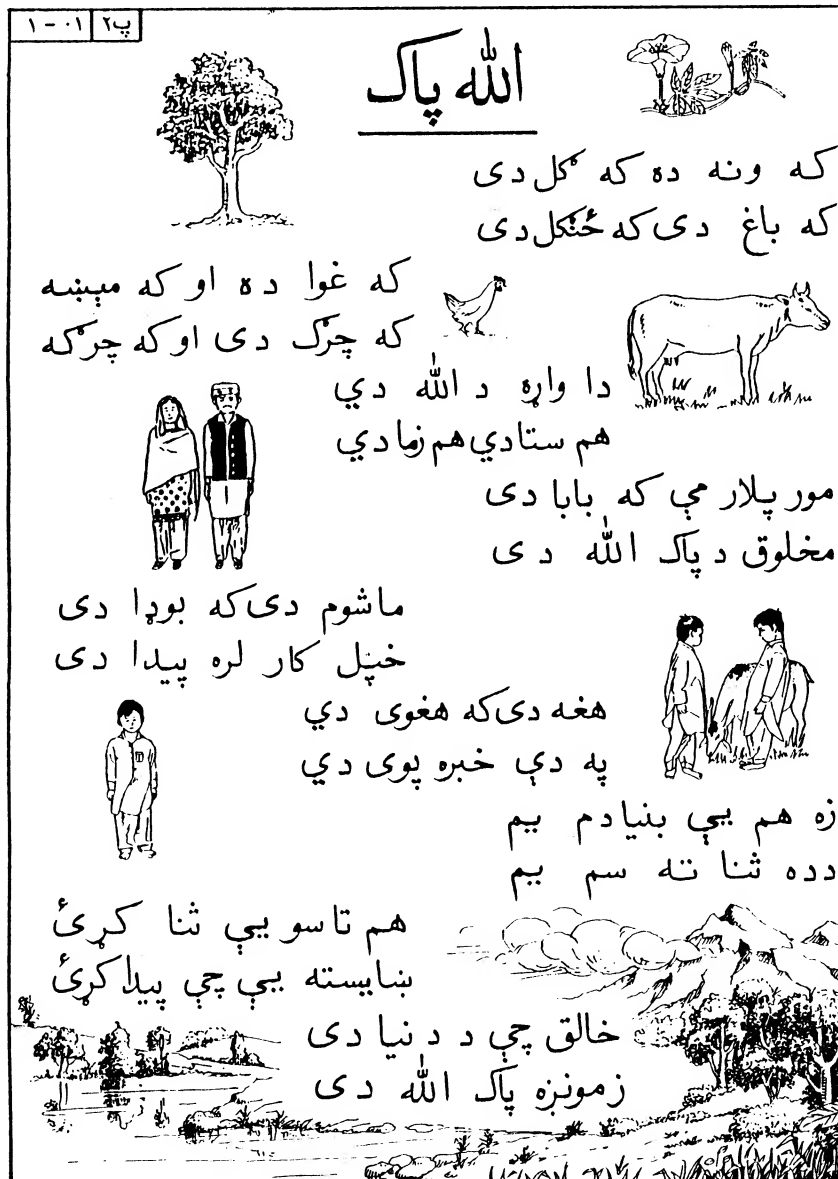 پ۲ ۰۱-۱
الله پاک
که ونه ده که ګل دی
که باغ دی که ځنګل دی
که غوا ده او که مېښه
که چرګ دی او که چرګه
دا واړه د الله دي
هم ستادي هم زمادي
مور پلار مې که بابا دی
مخلوق د پاک الله دی
ماشوم دی که بوډا دی
خپل کار لره پيدا دی
هغه دی که هغوی دي
په دې خبره پوی دي
زه هم يې بنيادم يم
دده ثنا ته سم يم
هم تاسو يې ثنا کړئ
ښايسته يې چې پيدا کړئ
خالق چې د دنيا دی
زمونږه پاک الله دی